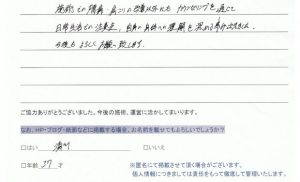 施術での腰痛・肩こりの改善以外にも カウンセリングを通じて
日常生活での注意点、自身の身体への理解を深める事が出来ました。
今後もよろしくお願い致します。
ご協力ありがとうございました。今後の施術、運営に活かしてまいります。
なお、HP・ブログ・紙面などに掲載する場合、お名前を載せてもよろしいでしょうか?
□はい
□いいえ
□年齢 37 才
※匿名にて掲載させて頂く場合がございます。
個人情報につきましては責任をもって徹底して管理いたします。